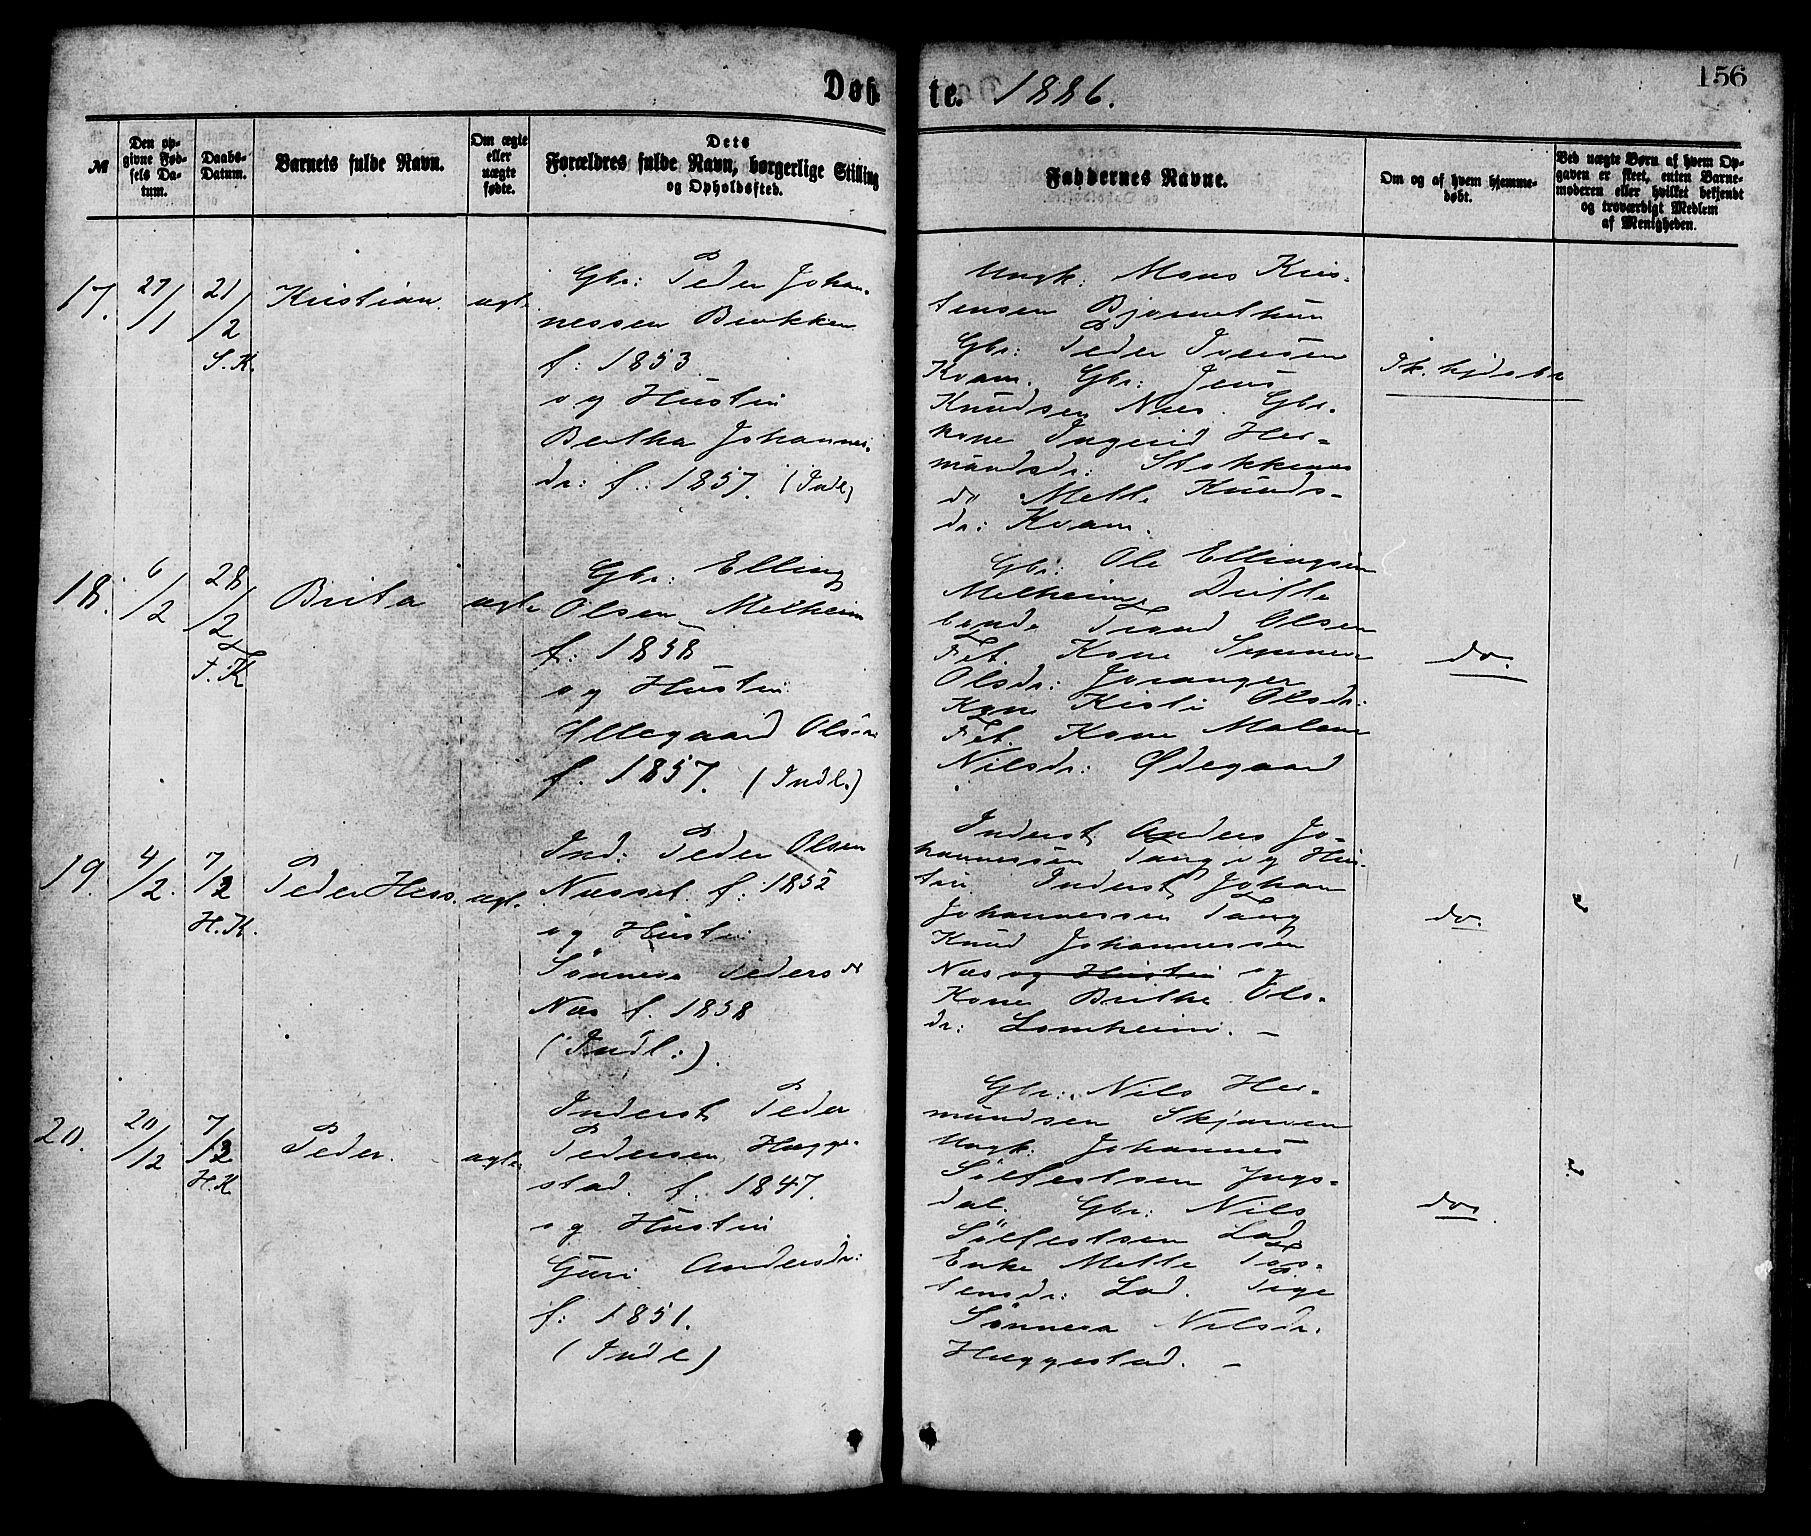 Døb
te. 1886.
156
№
Den op-
givne Fød-
sels Da-
tum.
Daabs-
Datum.
Barnets fulde Navn.
Om ægte
eller
uægte
fødte.
Dets
Forældres fulde Navn, borgerlige Stilling
og Opholdssted.
Faddernes Navne.
Om og af hvem hjemme-
døbt.
Ved uægte Børn af hvem Op-
gaven er skeet, enten Barne-
moderen eller hvilket bekjendt
og troværdigt Medlem
af Menigheden.
17.
27/1
21/2
S.K.
Kristian
ægte
Gbr: Peder Johan-
nessen
f: 1853
og Hustru
Bertha Johannes-
dr: f: 1857. (Indl)
Ungk: Mons Kris-
tensen Bjørnethun
Gbr: Peder Iversen
Kvam. Gbr: Jens
Knudsen Næs. Gbr.
kone Ingerid Her-
mundsdr: Stokkenæs
do Mette Knuds-
dr: Kvam.
Ik. hjdøbt
18.
6/2
28/2
F.K
Brita
ægte
Gbr: Elling
Olsen Melheim
f: 1858
og Hustru
Øllegaard Olsdr
f. 1857. (Indl.)
Gbr: Ole Ellingsen
Melheim,
Trond Olsen
Fet. Kone Synneva
Olsdr: Joranger
Kone Kisti Olsdr:
Fet. Kone Malene
Nilsdr: Ødegaard
do.
19.
4/2.
7/3
H.K.
Peder Hess.
ægt.
Ind: Peder Olsen
Næsset. f: 1852
og Hustru
Sønneva Pedersdr
Næs f. 1858
(Indl:).
Inderst Anders Jo-
hannessen Tang og Hus-
tru. Inderst Johan
Johannessen Tang
Knud Johannessen
Næs og Hustru og
Kone Brithe Ols-
dr: Lomheim. -
do.
20.
20/12
7/3
H.K
Peder.
ægte
Inderst Peder
Pedersen Hægge-
stad. f. 1847.
og Hustru
Guri Andersdr:
f: 1851.
(Indl)
Gbr: Nils Her-
mundsen Skjerven
Ungk. Johannes
Sølfestsen Yngs-
dal. Gbr: Nils
Sølfestsen Lad
Enke Mette Tos-
tensdr: Lad. Pige
Sønneva Nilsdr.
Hæggestad. -
do.